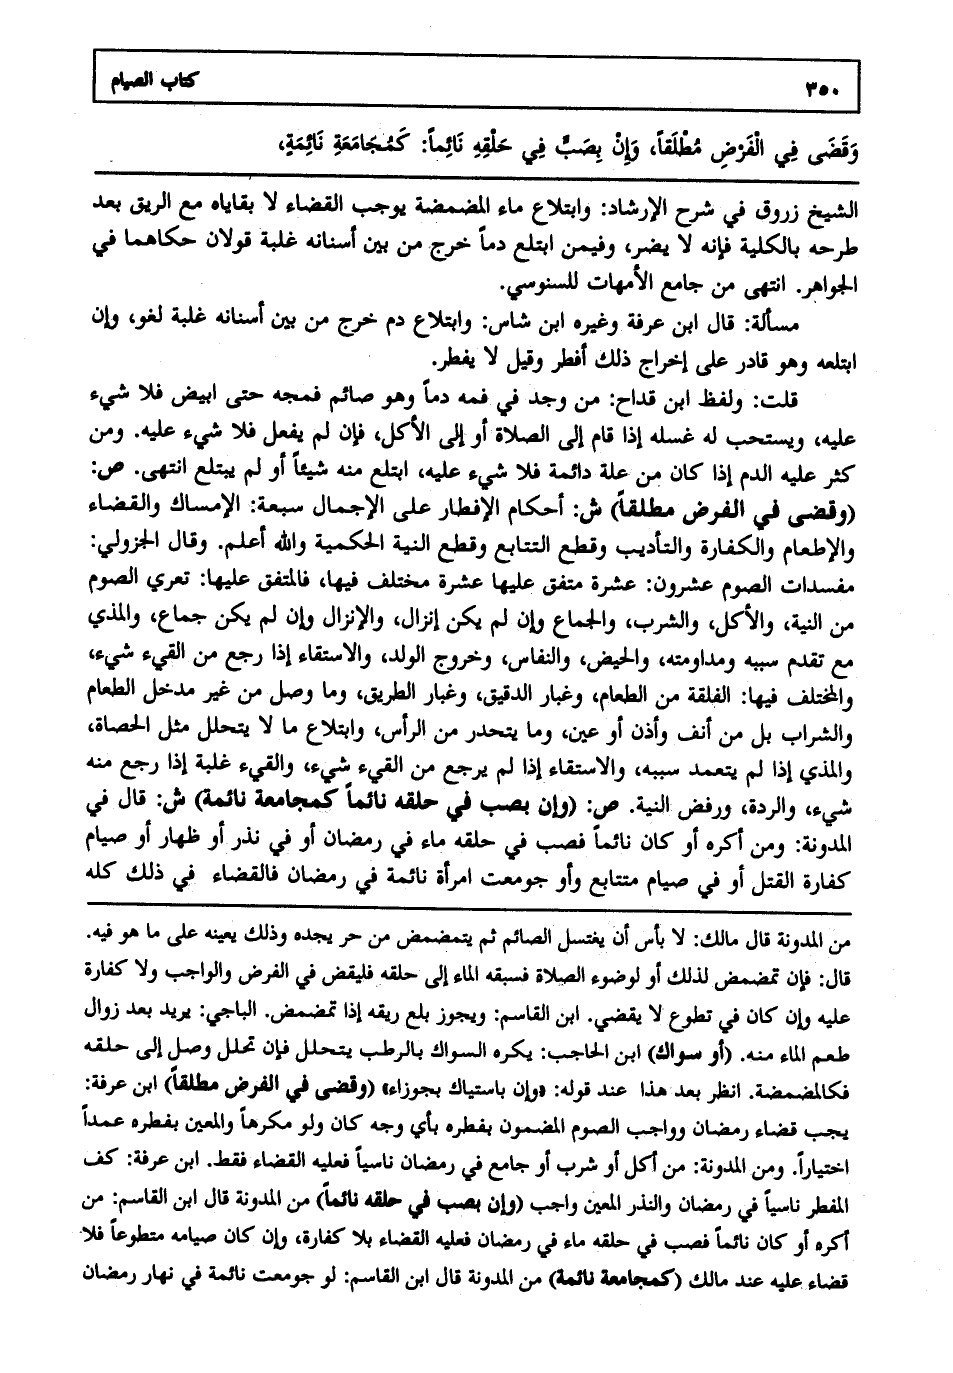 ٣٥٠
كتاب الصيام
وَقَضَى فِي الْفَرْضِ مُطْلَقاً، وَإِنْ بِصَبٍّ فِي حَلْقِهِ نَائِماً: كَمُجَامَعَةِ نَائِمَةٍ،
الشيخ زروق في شرح الإرشاد: وابتلاع ماء المضمضة يوجب القضاء لا بقاياه مع الريق بعد
طرحه بالكلية فإنه لا يضر، وفيمن ابتلع دماً خرج من بين أسنانه غلبة قولان حكاهما في
الجواهر. انتهى من جامع الأمهات للسنوسي.
مسألة: قال ابن عرفة وغيره ابن شاس: وابتلاع دم خرج من بين أسنانه غلبة لغو، وإن
ابتلعه وهو قادر على إخراج ذلك أفطر وقيل لا يفطر.
قلت: ولفظ ابن قداح: من وجد في فمه دماً وهو صائم فمجه حتى ابيض فلا شيء
عليه، ويستحب له غسله إذا قام إلى الصلاة أو إلى الأكل، فإن لم يفعل فلا شيء عليه. ومن
كثر عليه الدم إذا كان من علة دائمة فلا شيء عليه، ابتلع منه شيئاً أو لم يبتلع انتهى. ص:
(وقضى في الفرض مطلقاً) ش: أحكام الإفطار على الإجمال سبعة: الإمساك والقضاء
والإطعام والكفارة والتأديب وقطع التتابع وقطع النية الحكمية والله أعلم. وقال الجزولي:
مفسدات الصوم عشرون: عشرة متفق عليها عشرة مختلف فيها، فالمتفق عليها: تعري الصوم
من النية، والأكل، والشرب، والجماع وإن لم يكن إنزال، والإنزال وإن لم يكن جماع، والمذي
مع تقدم سببه ومداومته، والحيض، والنفاس، وخروج الولد، والاستقاء إذا رجع من القيء شيء،
والمختلف فيها: الفلقة من الطعام، وغبار الدقيق، وغبار الطريق، وما وصل من غير مدخل الطعام
والشراب بل من أنف وأذن أو عين، وما يتحدر من الرأس، وابتلاع ما لا يتحلل مثل الحصاة،
والمذي إذا لم يتعمد سببه، والاستقاء إذا لم يرجع من القيء شيء، والقيء غلبة إذا رجع منه
شيء، والردة، ورفض النية. ص: (وإن بصب في حلقه نائماً كمجامعة نائمة) ش: قال في
المدونة: ومن أكره أو كان نائماً فصب في حلقه ماء في رمضان أو في نذر أو ظهار أو صيام
كفارة القتل أو في صيام متتابع وأو جومعت امرأة نائمة في رمضان فالقضاء في ذلك كله
من المدونة قال مالك: لا بأس أن يغتسل الصائم ثم يتمضمض من حر يجده وذلك يعينه على ما هو فيه.
قال: فإن تمضمض لذلك أو لوضوء الصلاة فسبقه الماء إلى حلقه فليقض في الفرض والواجب ولا كفارة
عليه وإن كان في تطوع لا يقضي. ابن القاسم: ويجوز بلع ريقه إذا تمضمض. الباجي: يريد بعد زوال
طعم الماء منه. (أو سواك) ابن الحاجب: يكره السواك بالرطب يتحلل فإن تحلل وصل إلى حلقه
فكالمضمضة. انظر بعد هذا عند قوله: «وإن باستياك بجوزاء» (وقضى في الفرض مطلقاً) ابن عرفة:
يجب قضاء رمضان وواجب الصوم المضمون بفطره بأي وجه كان ولو مكرهاً والمعين بفطره عمداً
اختياراً. ومن المدونة: من أكل أو شرب أو جامع في رمضان ناسياً فعليه القضاء فقط. ابن عرفة: كف
المفطر ناسياً في رمضان والنذر المعين واجب (وإن بصب في حلقه نائماً) من المدونة قال ابن القاسم: من
أكره أو كان نائماً فصب في حلقه ماء في رمضان فعليه القضاء بلا كفارة، وإن كان صيامه متطوعاً فلا
قضاء عليه عند مالك (كمجامعة نائمة) من المدونة قال ابن القاسم: لو جومعت نائمة في نهار رمضان